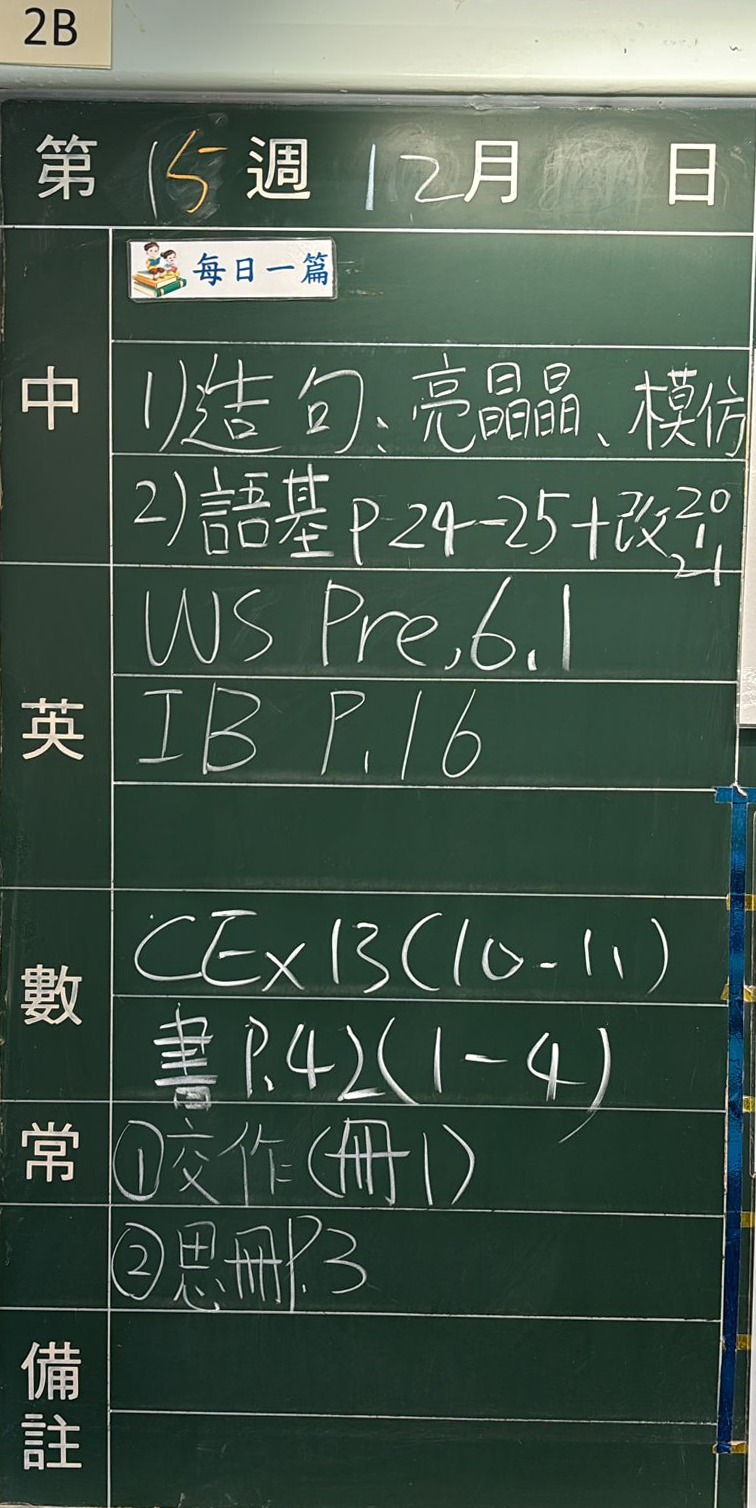 2B
第 15 週 12 月 日
每日一篇
中
1)造句:亮晶晶、模仿
2)語基 P.24-25+改20
21
英
WS Pre.6.1
IB P.16
數
CEx 13(10-11)
書 P.42(1-4)
常
①交作(冊1)
②思冊P.3
備註